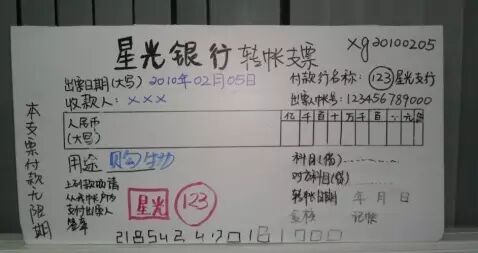 星光银行 转帐支票 xg20100205
出票日期(大写) 2010年02月05日 付款行名称: 123 星光支行
收款人: ××× 出票人帐号: 123456789000
人民币 亿千百十万千百
(大写)
本支票付款九限期
用途 购生物 科目(借)............
上列款项请 对方科目(贷)............
从我帐户内 星光 123 转帐日期 年 月 日
支付出票人
签章 复核 记帐